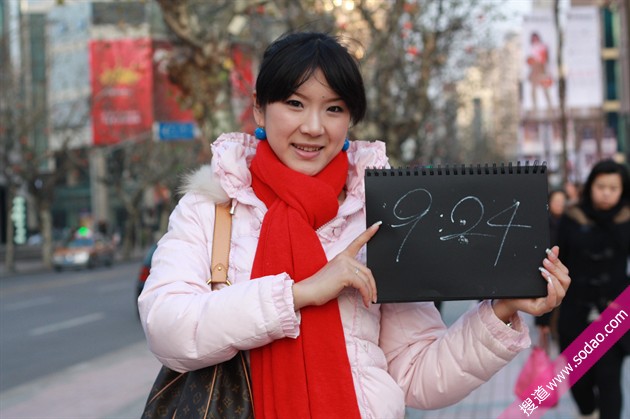 9:24
搜道www.sodao.com